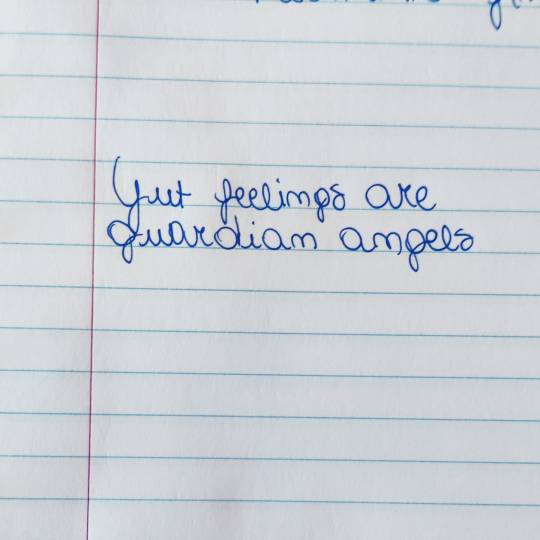 Gut feelings are
guardian angels